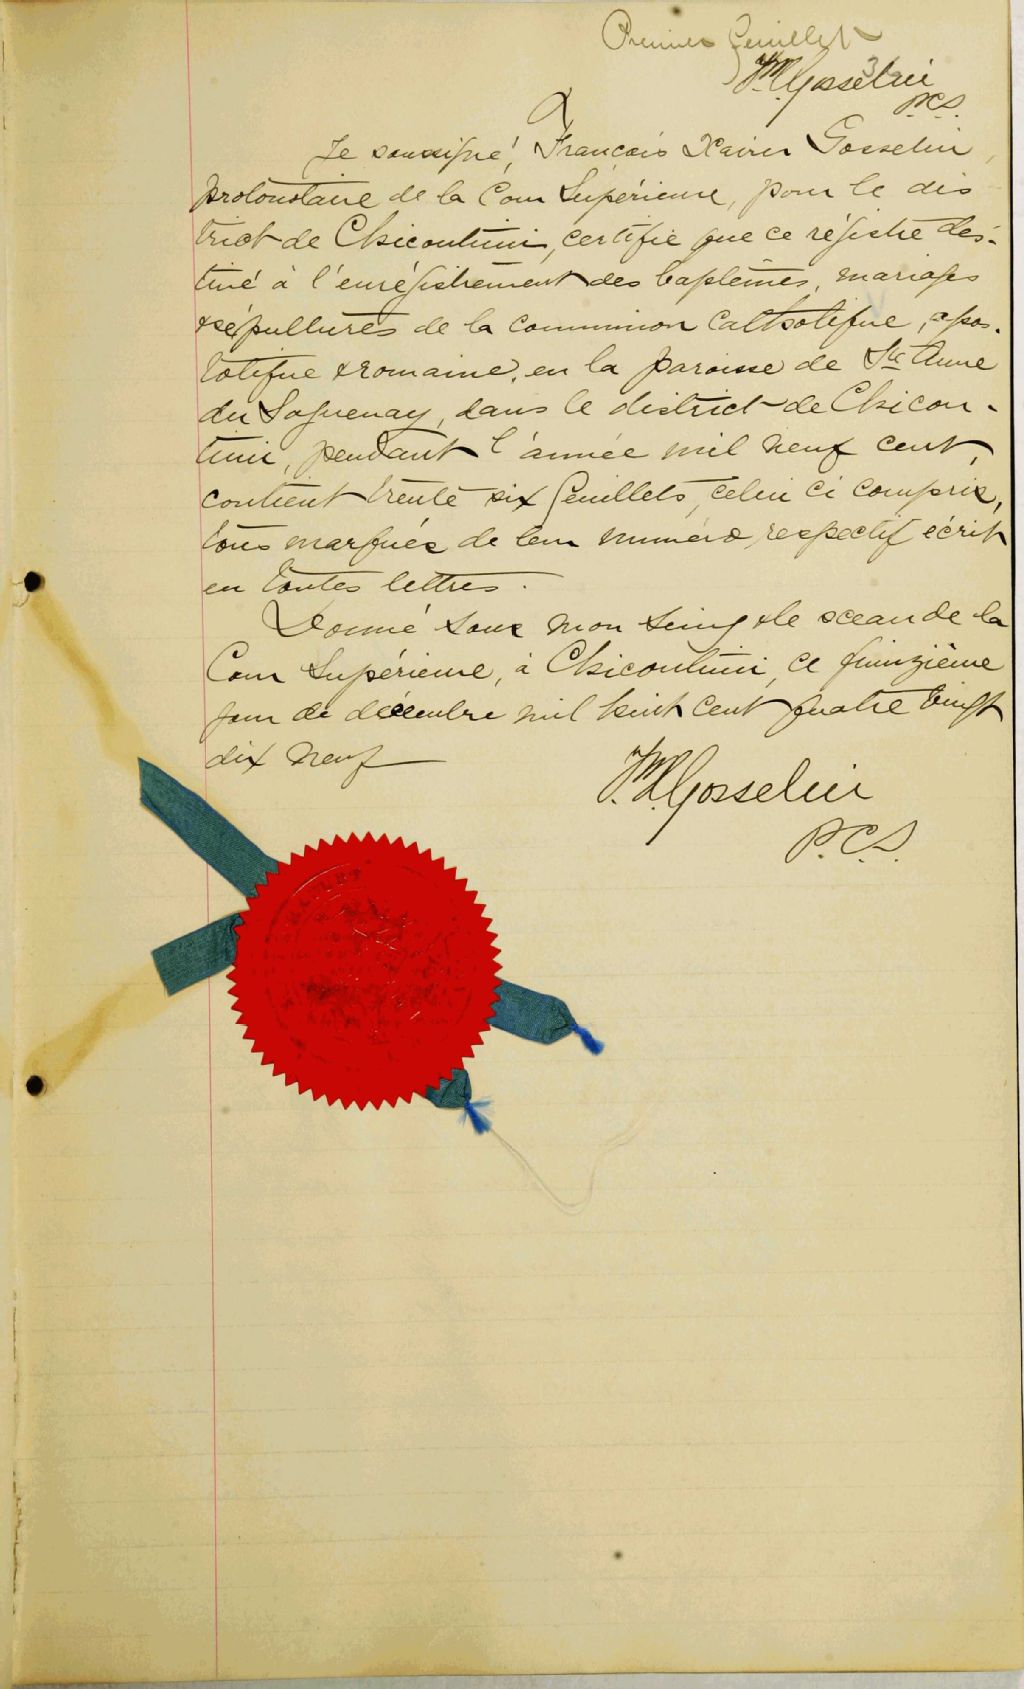 Premier feuillet
Gosselin
P.C.S.
Je soussigné, François Xavier Gosselin,
protonotaire de la Cour Supérieure, pour le dis
trict de Chicoutimi, certifie que ce régistre des-
tiné à l'enrégistrement des baptêmes, mariages
& sépultures de la communion catholique, apos-
tolique & romaine, en la paroisse de Ste Anne
du Saguenay, dans le district de Chicou-
timi, pendant l'année mil neuf cent,
contient trente six feuillets, celui ci compris,
tous marqués de leur numéro respectif écrit
en toutes lettres.
Donné sous mon seing & le sceau de la
Cour Supérieure, à Chicoutimi, ce quinzième
jour de décembre mil huit cent quatre vingt
dix neuf
Gosselin
P.C.S.